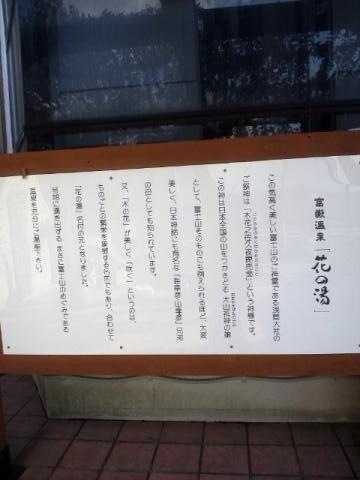 富嶽温泉「花の湯」
この気高く美しい富士山のご神霊である浅間大社の
ご祭神は「木花之佐久夜毘売命」という神様です。
この神は日本全国の山をつかさどる 大山祇神の娘
として、富士山そのものにも例えられるほど、大変
美しく、日本神話にも有名な「海幸彦・山幸彦」兄弟
の母としても知られています。
又、「木の花」が美しく「咲く」というのは、
ものごとの繁栄を象徴する名前でもあり、合わせて
「花の湯」名付の元となりました。
当地に湧き出する まさに富士山のめぐみである
温泉を充分にご堪能下さい。